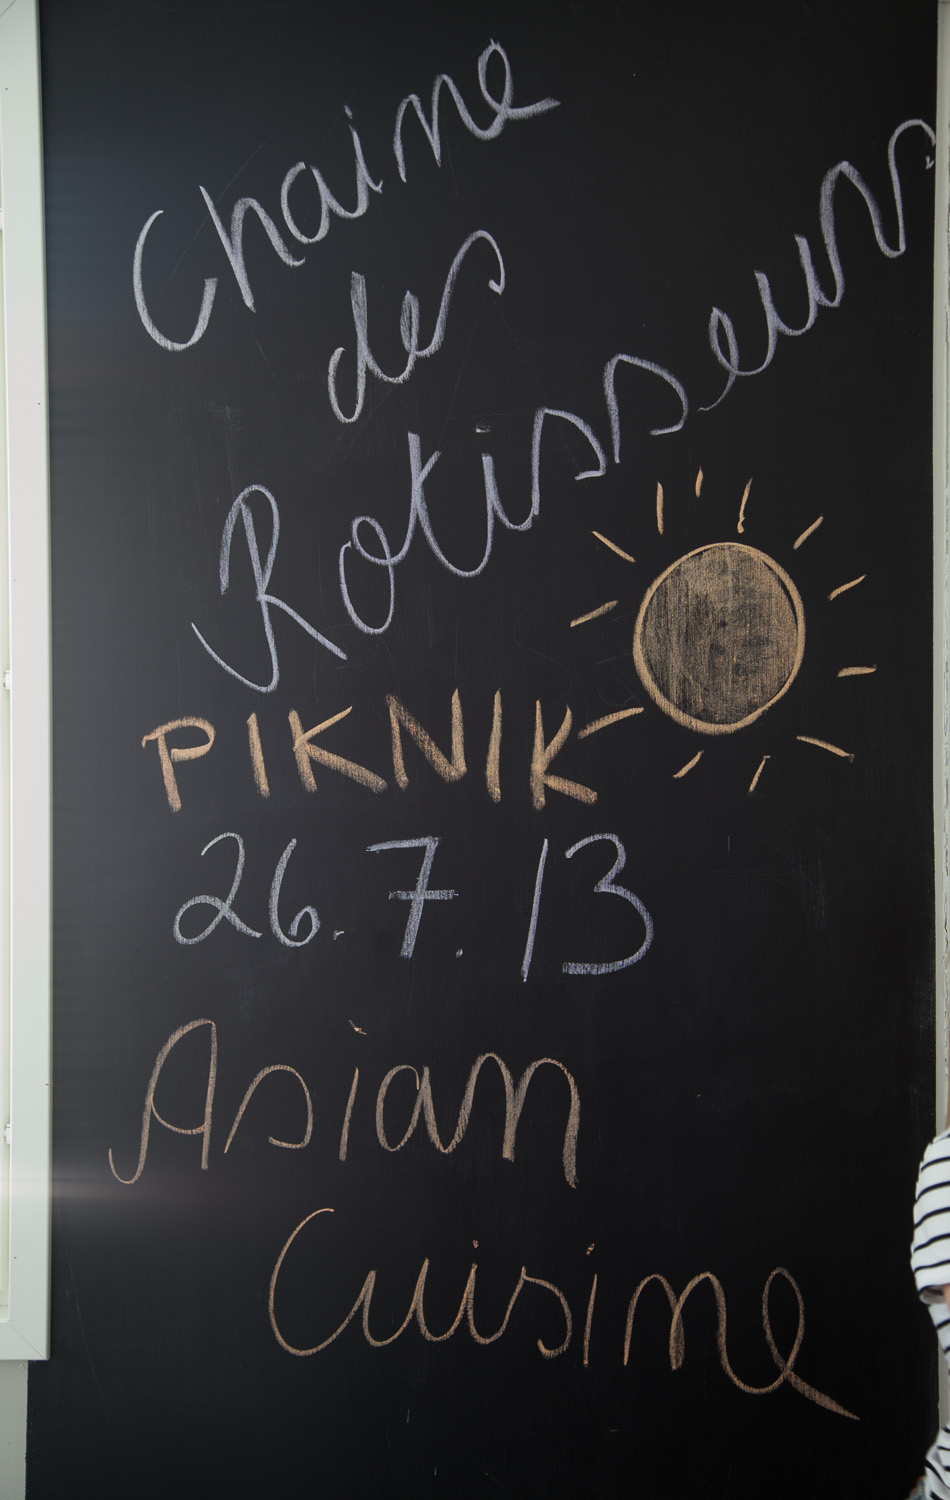 Chaine
des
Rotisseurs
PIKNIK
26.7.13
Asian
Cuisine